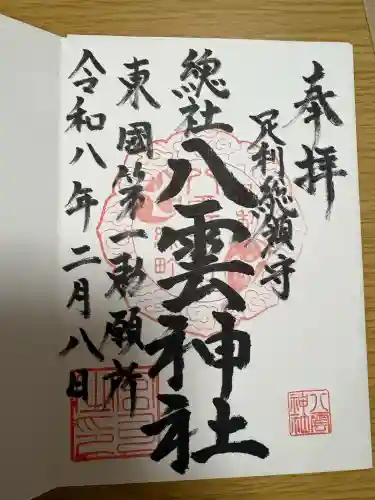 奉拝
足利總鎮守
總社
八雲神社
東國第一勅願所
令和八年二月八日
八雲
神社